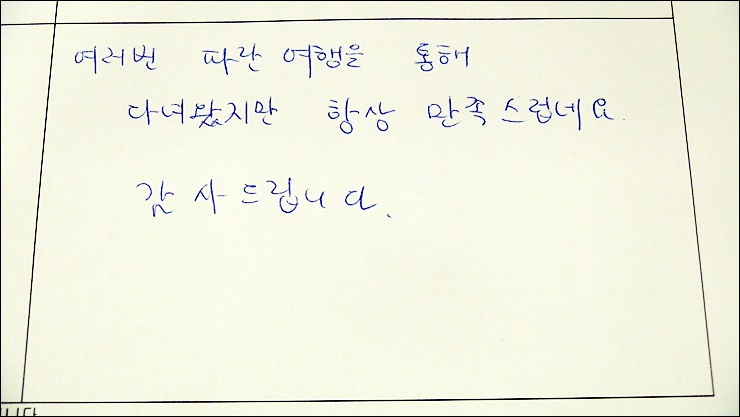 여러번 파란 여행을 통해
다녀왔지만 항상 만족스럽네요.
감사드립니다.
니다